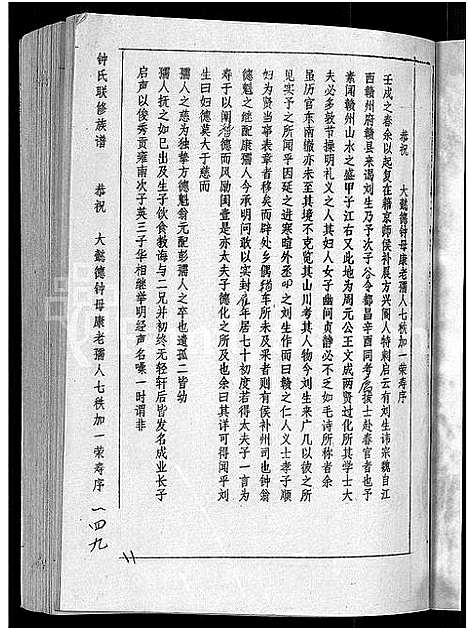 恭祝　大懿德钟母康老孺人七秩加一荣寿序
壬戌之春余以起复在籍京师侯补展方兴阍人特刺启云有刘生讳宗魏自江
西赣州府赣县来谒刘生乃予次子谷令都昌辛酉同考后援士赴春官者也予
素闻赣州山水之盛甲子江右又此地为周元公王文成两贤过化所其学士大
夫必多敦节操明礼义之人其妇人女子幽间贞静必不乏如毛诗所称者余
虽历官东南缴亦未至其境不克览其山川考其人物今刘生来广几以彼之所
见实予之所闻乎因延之进寒暄外丞叩之刘生作而曰赣之仁人义士孝子顺
妇为贤当幸表章者移矣而辟处乡偶𬨎车所未及采者则有侯补州司也钟翁
德魁之继配康孺人今承明问敢以实封君年居七十初度若得太夫子一言为
寿于以阐德而风励闺壸是亦太夫子德化之所及也余曰其详可得闻乎刘
生曰妇德莫大于慈而
孺人之慈为独挚方德魁翁元配彭孺人之卒也遗孤二皆幼
孺人抚之如已出及生子饮食教诲与二兄并初终无轻轩后皆发名成业长子
启声以俊秀贡雍南次子英三子华相继举明经声名嗓一时谓非
钟氏联修族谱　恭祝　大懿德钟母康老孺人七秩加一荣寿序　一四九